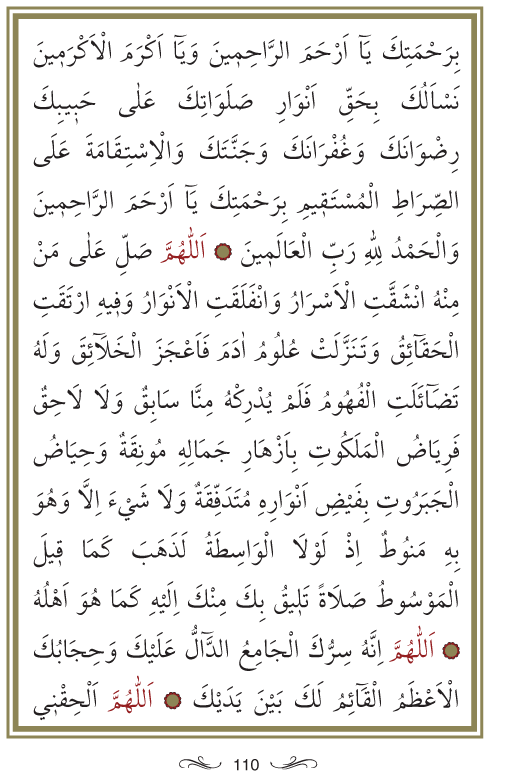 بِرَحْمَتِكَ يَٓا اَرْحَمَ الرَّاحِمٖينَ وَيَٓا اَكْرَمَ الْاَكْرَمٖينَ
نَسْاَلُكَ بِحَقِّ اَنْوَارِ صَلَوَاتِكَ عَلٰى حَبٖيبِكَ
رِضْوَانَكَ وَغُفْرَانَكَ وَجَنَّتَكَ وَالْاِسْتِقَامَةَ عَلَى
الصِّرَاطِ الْمُسْتَقٖيمِ بِرَحْمَتِكَ يَٓا اَرْحَمَ الرَّاحِمٖينَ
وَالْحَمْدُ لِلّٰهِ رَبِّ الْعَالَمٖينَ ۞ اَللّٰهُمَّ صَلِّ عَلٰى مَنْ
مِنْهُ انْشَقَّتِ الْاَسْرَارُ وَانْفَلَقَتِ الْاَنْوَارُ وَفٖيهِ ارْتَقَتِ
الْحَقَٓائِقُ وَتَنَزَّلَتْ عُلُومُ اٰدَمَ فَاَعْجَزَ الْخَلَٓائِقَ وَلَهُ
تَضَٓائَلَتِ الْفُهُومُ فَلَمْ يُدْرِكْهُ مِنَّا سَابِقٌ وَلَا لَاحِقٌ
فَرِيَاضُ الْمَلَكُوتِ بِاَزْهَارِ جَمَالِهِ مُونِقَةٌ وَحِيَاضُ
الْجَبَرُوتِ بِفَيْضِ اَنْوَارِهِ مُتَدَفِّقَةٌ وَلَا شَيْءَ اِلَّا وَهُوَ
بِهِ مَنُوطٌ اِذْ لَوْلَا الْوَاسِطَةُ لَذَهَبَ كَمَا قٖيلَ
الْمَوْسُوطُ صَلَاةً تَلٖيقُ بِكَ مِنْكَ اِلَيْهِ كَمَا هُوَ اَهْلُهُ
۞ اَللّٰهُمَّ اِنَّهُ سِرُّكَ الْجَامِعُ الدَّٓالُّ عَلَيْكَ وَحِجَابُكَ
الْاَعْظَمُ الْقَٓائِمُ لَكَ بَيْنَ يَدَيْكَ ۞ اَللّٰهُمَّ اَلْحِقْنٖي
110